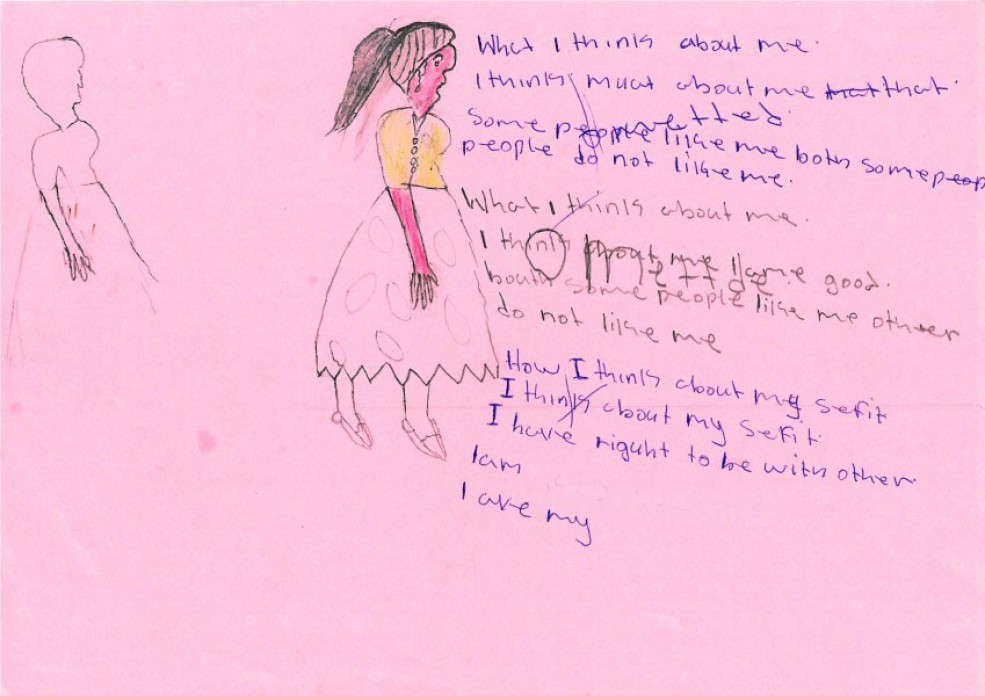 What I thinks about me.
I thinks muat about me that that.
some people like me both some peop
people do not like me.
What I thinks about me.
I thinks about me I ame good.
bouth some people like me other
do not like me
How I thinks about my sefit
I thinks about my sefit.
I have riguht to be with other.
I am
I ave my